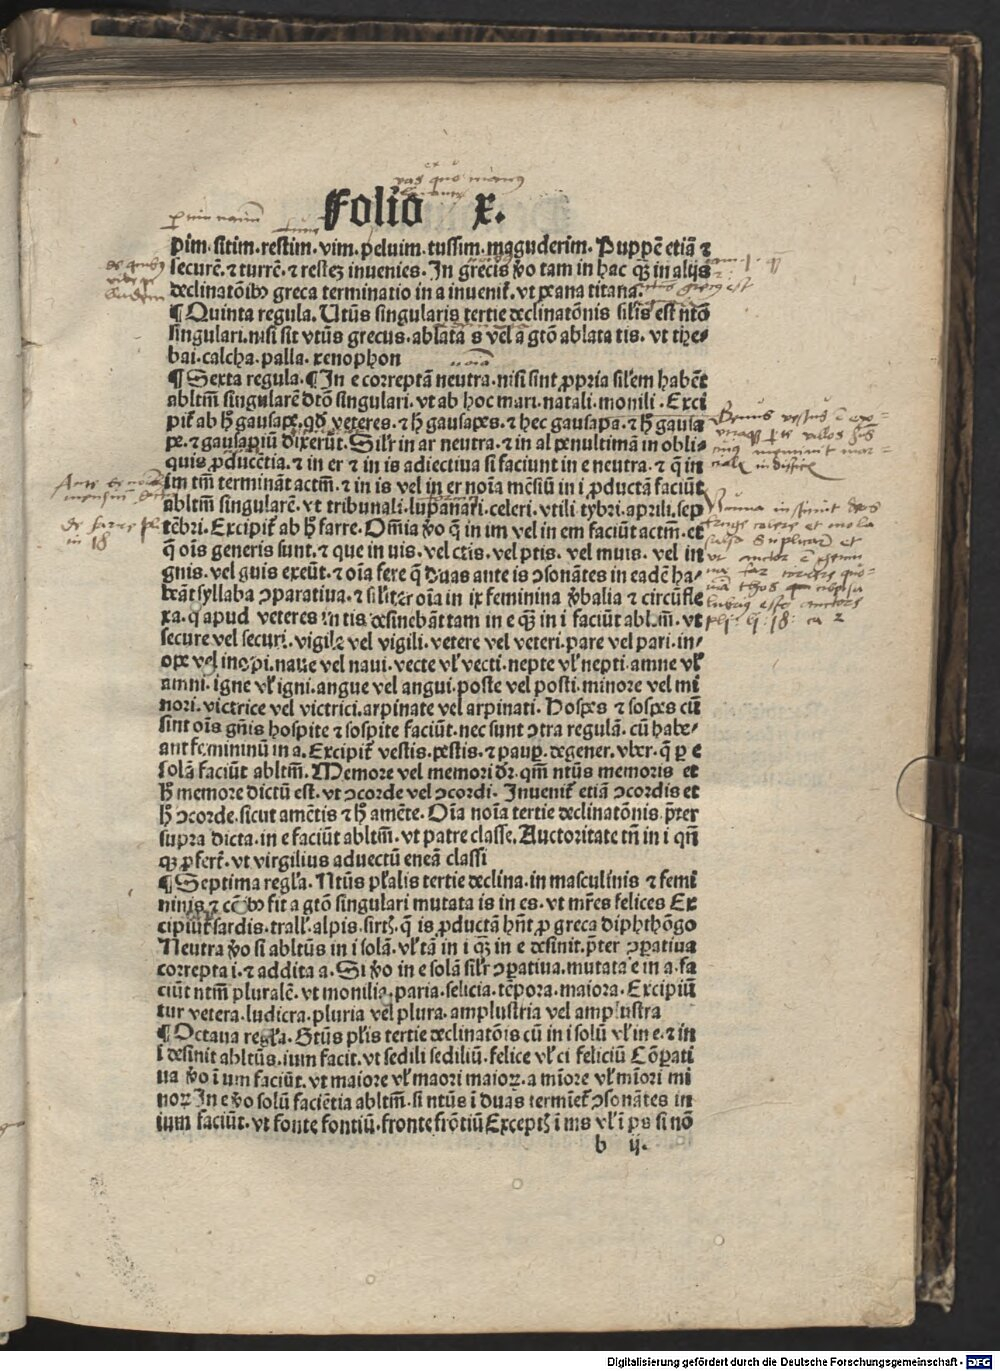 vas quo manus
Folio x.
pim. sitim. restim. vim. peluim. tussim. maguderim. Puppē etiā ⁊
securē. ⁊ turrē. ⁊ resteʒ inuenies. In grecis ꝟo tam in hac qꝫ in alijs
declinatōibꝰ greca terminatio in a inueniť. vt peana titana.
¶ Quinta regula. Vtūs singularis tertie declinatōnis sil̄is est ntō
singulari. nisi sit vtūs grecus. ablata s vel a gtō ablata tis. vt the⸗
bai. calcha. palla. xenophon
¶ Sexta regula. ¶ In e correptā neutra. nisi sint ꝓpria sil̄em habēt
abltm̄ singularē dtō singulari. vt ab hoc mari. natali. monili. Exci
piť ab h̄ gausape. qd̄ veteres. ⁊ h̄ gausapes. ⁊ hec gausapa. ⁊ h̄ gausa
pe. ⁊ gausapiū dixerūt. Sil̄r in ar neutra. ⁊ in al penultimā in obli⸗
quis ꝓducētia. ⁊ in er ⁊ in is adiectiua si faciunt in e neutra. ⁊ q̄ in
im tm̄ termināt actm̄. ⁊ in is vel in er noīa mēsiū in i ꝓductā faciūt
abltm̄ singularē. vt tribunali. lupanari. celeri. vtili. tybri. aprili. sep
tēbri. Excipiť ab h̄ farre. Om̄ia ꝟo q̄ in um vel in em faciūt actm̄. et
q̄ oīs generis sunt. ⁊ que in uis. vel ctis. vel ptis. vel muis. vel in
gnis. vel guis exeūt. ⁊ oīa fere q̄ duas ante is ↄsonātes in eadē ha⸗
beāt syllaba ↄparatiua. ⁊ sil̄iter oīa in ix feminina ꝟbalia ⁊ circūfle
xa. q̄ apud veteres in tis desinebāt tam in e qꝫ in i faciūt abltm̄. vt
secure vel securi. vigile vel vigili. vetere vel veteri. pare vel pari. in⸗
ope vel inopi. naue vel naui. vecte vl̄ vecti. nepte vl̄ nepti. amne vl̄
amni. igne vl̄ igni. angue vel angui. poste vel posti. minore vel mi
nori. victrice vel victrici. arpinate vel arpinati. Hospes ⁊ sospes cū
sint oīs gn̄is hospite ⁊ sospite faciūt. nec sunt ↄtra regulā. cū habe⸗
ant femininū in a. Excipiť vestis. pestis. ⁊ paup̄. degener. vber. q̄ p̱ e
solā faciūt abltm̄. Memore vel memori dr̄. qm̄ ntūs memoris et
h̄ memore dictū est. vt ↄcorde vel ↄcordi. Inueniť etiā ↄcordis et
h̄ ↄcorde. sicut amētis ⁊ h̄ amēte. Oīa noīa tertie declinatōnis. p̄ter
supra dicta. in e faciūt abltm̄. vt patre classe. Auctoritate tn̄ in i qn̄
qꝫ ꝓferť. vt virgilius aduectū eneā classi
¶ Septima regl̄a. Ntūs pl̄alis tertie declina. in masculinis ⁊ femi
ninis ⁊ cōibꝰ fit a gtō singulari mutata is in es. vt mr̄es felices Ex
cipiūť sardis. trall'. alpis. sirtꝭ. q̄ is ꝓductā hn̄t ꝓ greca diphthōgo
Neutra ꝟo si abltūs in i solā. vl̄ tā in i qꝫ in e desinit. p̄ter ↄparatiua
correpta i. ⁊ addita a. Si ꝟo in e solā sil̄r ↄparatiua. mutata e in a. fa
ciūt ntm̄ pluralē. vt monilia. paria. felicia. tēpora. maiora. Excipiū
tur vetera. ludicra. pluria vel plura. amplustria vel amplustra
¶ Octaua regl̄a. Gtūs pl̄is tertie declinatōis cū in i solū vl̄ in e. ⁊ in
i desinit abltūs. ium facit. vt sedili sediliū. felice vl̄ ci feliciū Cōparati
ua ꝟo ī um faciūt. vt maiore vl̄ maori maioꝝ. a mīore vl̄ mīori mi
noꝝ In e ꝟo solū faciētia abltm̄. si ntūs ī duas termīeť ↄsonātes in
ium faciūt. vt fonte fontiū. fronte frōtiū Exceptꝭ ī ms vl̄ ī ps si nō
b ij.
Digitalisierung gefördert durch die Deutsche Forschungsgemeinschaft - DFG